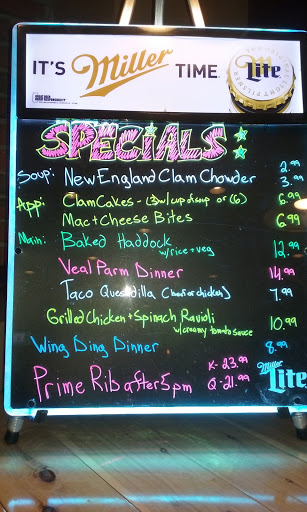 IT'S Miller TIME.
Lite
SPECIALS
Soup: New England Clam Chowder 2.99
3.99
App: Clam Cakes - (3 w/ cup of soup or (6) 6.99
Mac + Cheese Bites 6.99
Main: Baked Haddock 12.99
w/rice + veg
Veal Parm Dinner 14.99
Taco Quesadilla (beef or chicken) 7.99
Grilled Chicken + Spinach Ravioli 10.99
w/creamy tomato sauce
Wing Ding Dinner 8.99
Prime Rib after 5pm K- 23.99
Q- 21.99
Miller
Lite